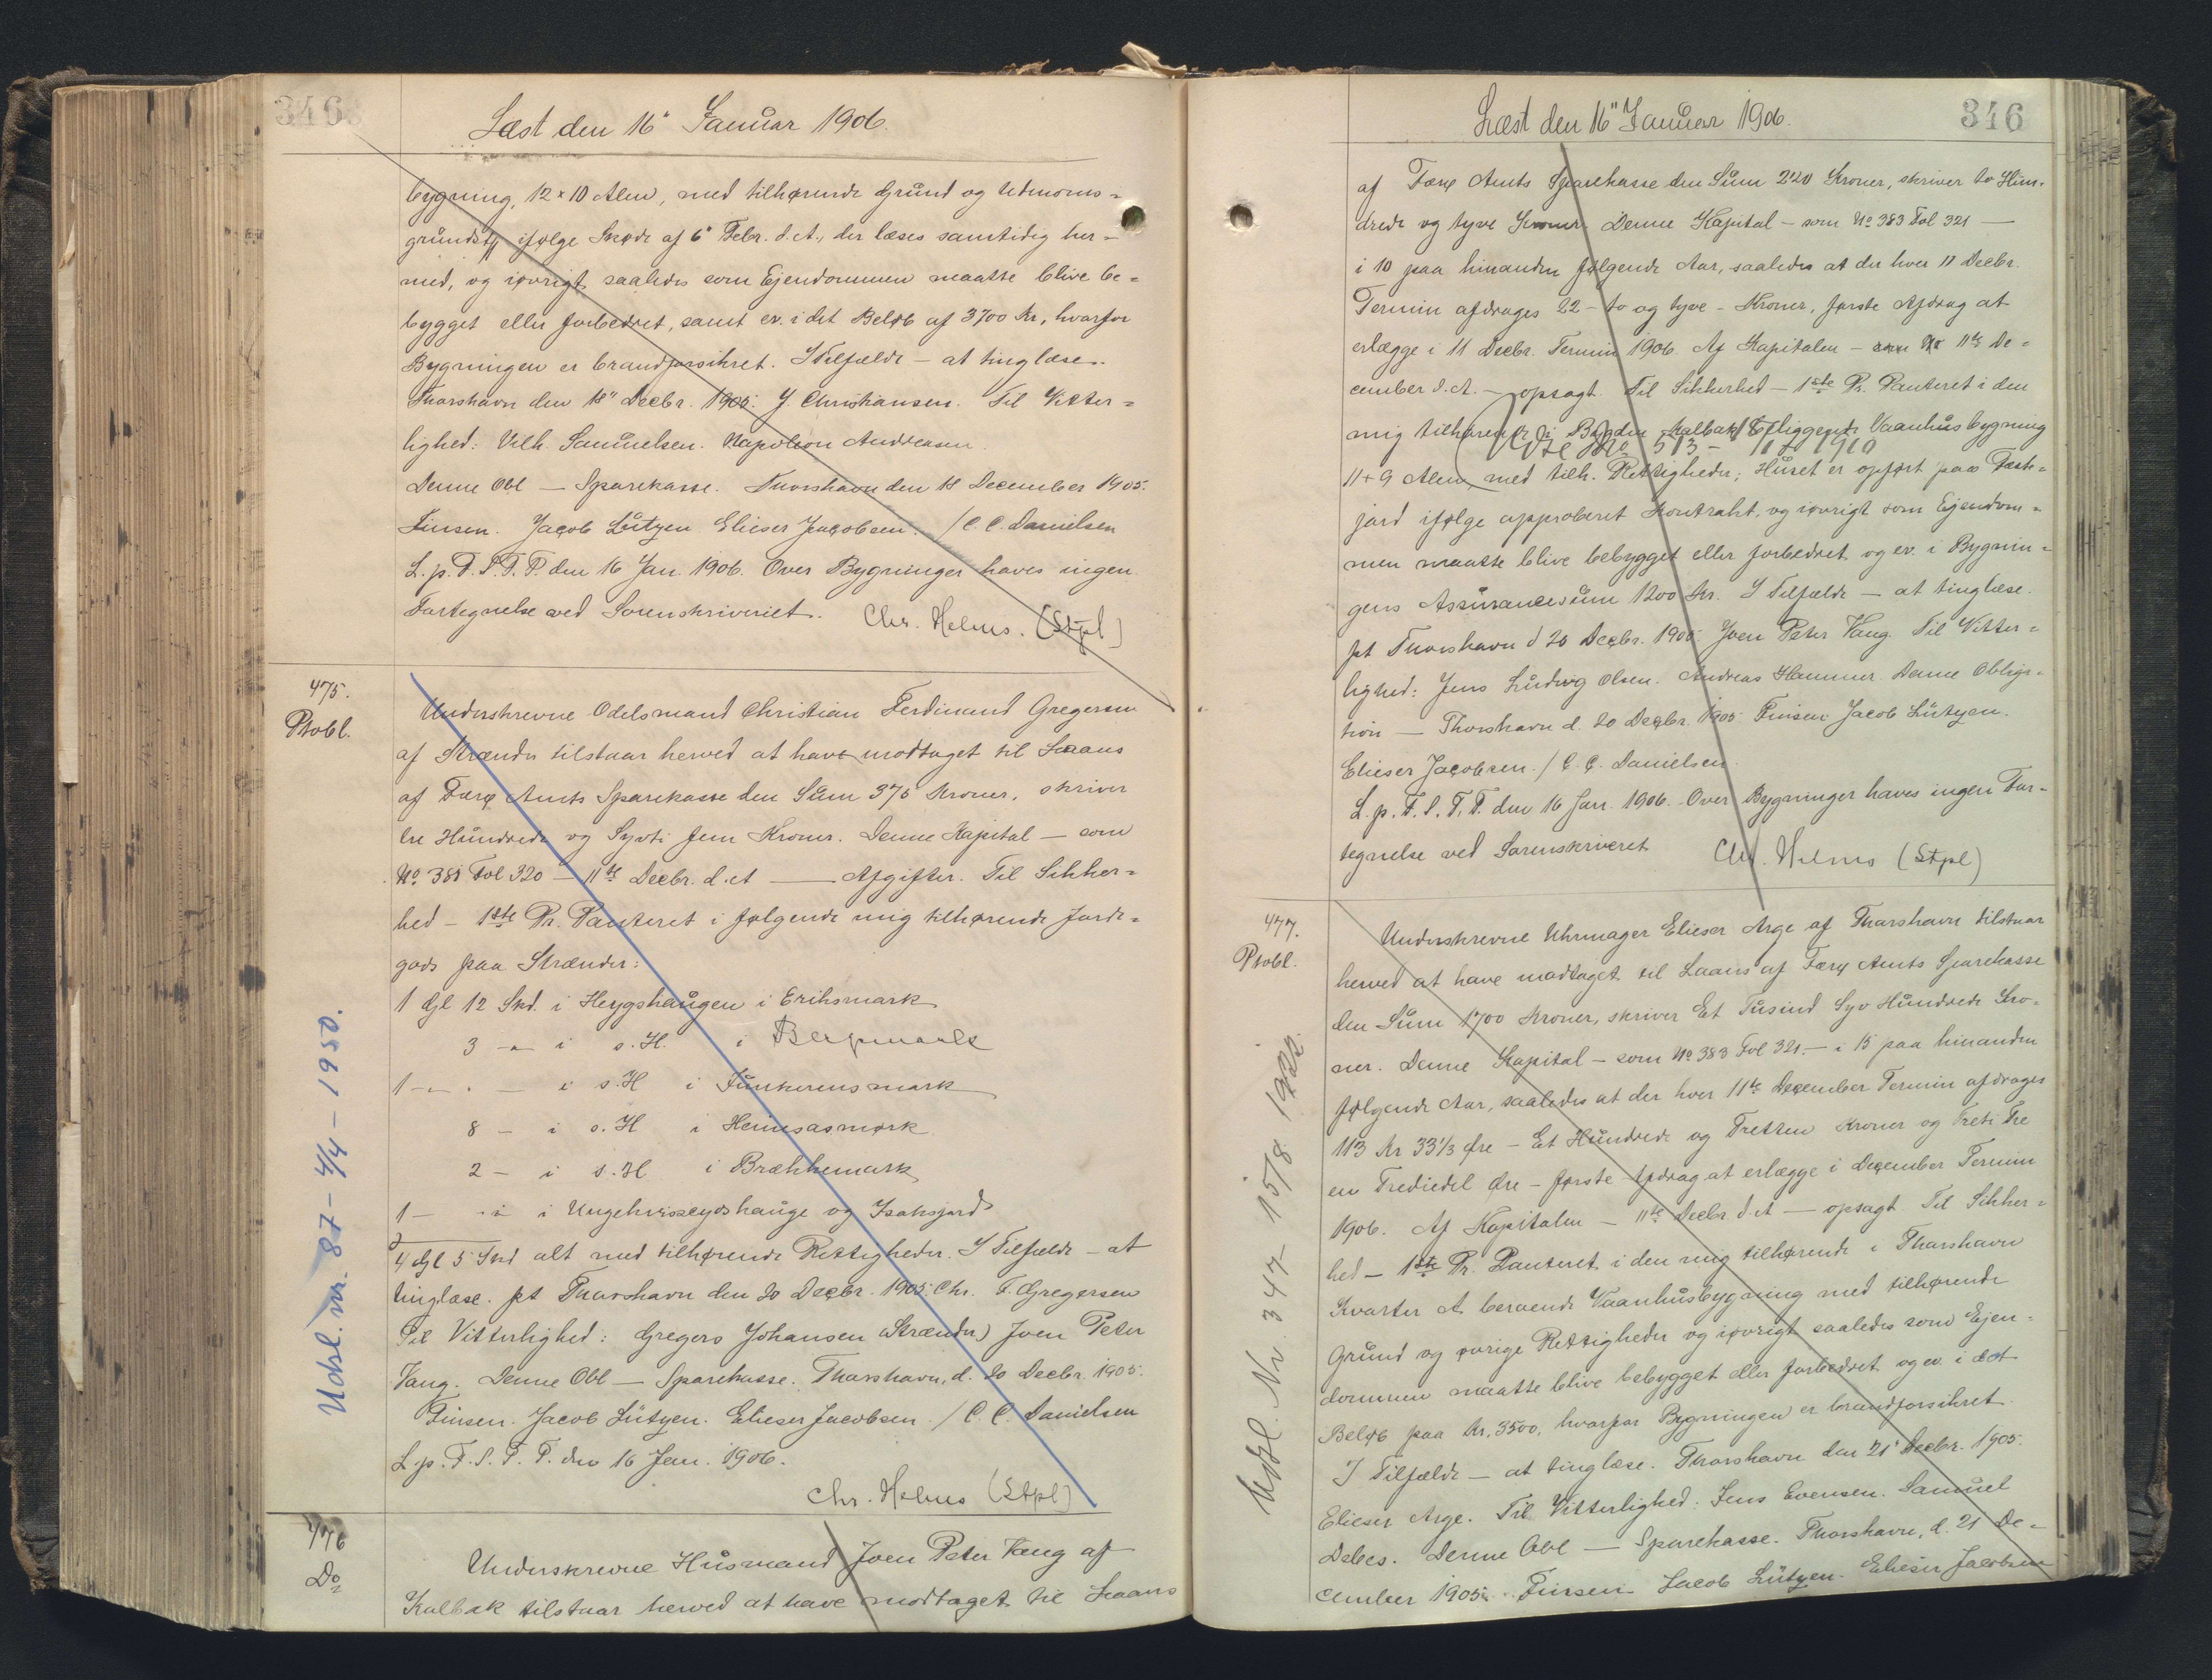 346
Læst den 16" Januar 1906.
bygning, 12 x 10 Alen, med tilhørende Grund og Udmarks-
grundstk ifølge Skøde af 6" Febr. d. A., der læses samtidig her-
med, og iøvrigt saaledes som Ejendommen maatte blive be-
bygget eller forbedret, samt ev. i det Beløb af 3700 Kr, hvorfor
Bygningen er brandforsikret. I Tilfælde – at tinglæse.
Thorshavn den 18" Decbr. 1905. J. Christiansen. Til Vitter-
lighed: Vilh. Samuelsen. Napoleon Andreasen.
Denne Obl — Sparekasse. Thorshavn den 18 December 1905.
Finsen. Jacob Lützen. Elieser Jacobsen. / C. C. Danielsen
L. p. F. S. T. P. den 16 Jan. 1906. Over Bygninger haves ingen
Fortegnelse ved Sorenskriveriet. Chr. Helms. (Stpl)
475.
Ptobl.
Underskrevne Odelsmand Christian Ferdinand Gregersen
af Strænder tilstaar herved at have modtaget til Laans
af Færø Amts Sparekasse den Sum 375 Kroner, skriver
tre Hundrede og Syvti fem Kroner. Denne Kapital — som
No 381 Fol 320 — 11te Decbr. d. A — Afgifter. Til Sikker-
hed – 1ste Pr. Panteret i følgende mig tilhørende Jorde-
gods paa Strænder:
1 Gl 12 Skd. i Heygshaugen i Eriksmark
3 – i s. H. i Bergmark
1 – – i s. H i Junkerensmark
8 – i s. H i Heinesasmørk
2 – i s. H i Brækkemark
1 – – i Ungekvisseydshauge og Isaksjord
4 Gl 5 Skd alt med tilhørende Rettigheder. I Tilfælde – at
tinglæse. pt Thorshavn den 20 Decbr. 1905. Chr. F. Gregersen
Til Vitterlighed: Gregers Johansen (Strænder) Joen Peter
Vang. Denne Obl — Sparekasse. Thorshavn, d. 20 Decbr. 1905.
Finsen. Jacob Lützen. Elieser Jacobsen. / C. C. Danielsen
L. p. F. S. T. P. den 16 Jan. 1906.
Chr. Helms (Stpl)
Udsl. nr. 87 – 4/4 – 1950.
476
Do
Underskrevne Husmand Joen Peter Vang af
Kalbak tilstaar herved at have modtaget til Laans
Læst den 16" Januar 1906.
346
af Færø Amts Sparekasse den Sum 220 Kroner, skriver to Hun-
drede og tyve Kroner. Denne Kapital – som No 383 Fol 321 —
i 10 paa hinanden følgende Aar, saaledes at der hver 11 Decbr.
Termin afdrages 22 – to og tyve – Kroner, første Afdrag at
erlægge i 11 Decbr. Termin 1906. Af Kapitalen – 11te De-
cember d. A. – opsagt. Til Sikkerhed – 1ste Pr. Panteret i den
mig tilhørende i Bygden Kalbak beliggende Vaanhusbygning
11 + 9 Alen, med tilh. Rettigheder; Huset er opført paa Fæste-
jord ifølge approberet Kontrakt, og iøvrigt som Ejendom-
men maatte blive bebygget eller forbedret og ev. i Bygnin-
gens Assurancesum 1200 Kr. I Tilfælde – at tinglæse.
pt Thorshavn d 20 Decbr. 1905. Joen Peter Vang. Til Vitter-
lighed: Jens Ludvig Olsen. Andreas Hammer. Denne Obliga-
tion — Thorshavn d. 20 Decbr. 1905. Finsen Jacob Lützen.
Elieser Jacobsen. / C. C. Danielsen.
L. p. F. S. T. P. den 16 Jan. 1906. Over Bygninger haves ingen For-
tegnelse ved Sorenskriveriet Chr. Helms (Stpl)
477.
Ptobl.
Underskrevne Uhrmager Elieser Arge af Thorshavn tilstaar
herved at have modtaget til Laans af Færø Amts Sparekasse
den Sum 1700 Kroner, skriver Et Tusind Syv Hundrede Kro-
ner. Denne Kapital – som No 383 Fol 321. – i 15 paa hinanden
følgende Aar, saaledes at der hver 11te December Termin afdrages
113 Kr 33 1/3 Øre – Et Hundrede og Tretten Kroner og Treti Tre
en Trediedel Øre – første Afdrag at erlægge i December Termin
1906. Af Kapitalen – 11te Decbr. d. A — opsagt. Til Sikker-
hed – 1ste Pr. Panteret i den mig tilhørende i Thorshavn
Kvarter A beroende Vaanhusbygning med tilhørende
Grund og øvrige Rettigheder og iøvrigt saaledes som Ejen-
dommen maatte blive bebygget eller forbedret og ev. i det
Beløb paa Kr. 3500, hvorfor Bygningen er brandforsikret.
I Tilfælde – at tinglæse. Thorshavn den 21' Decbr. 1905.
Elieser Arge. Til Vitterlighed: Jens Evensen. Samuel
Debes. Denne Obl — Sparekasse. Thorshavn, d. 21 De-
cember 1905. Finsen Jacob Lützen. Elieser Jacobsen
Udsl. Nr. 347 – 15/8 1922.